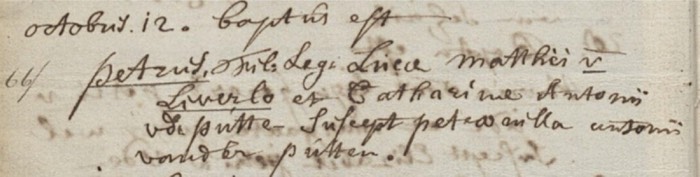 octobris. 12. baptus est
66/ petrus. Fil: Leg: Lucæ matthei v
Liverlo et Catharinæ Antonii
vdr putte Suscept petronilla antonii
vander putten.